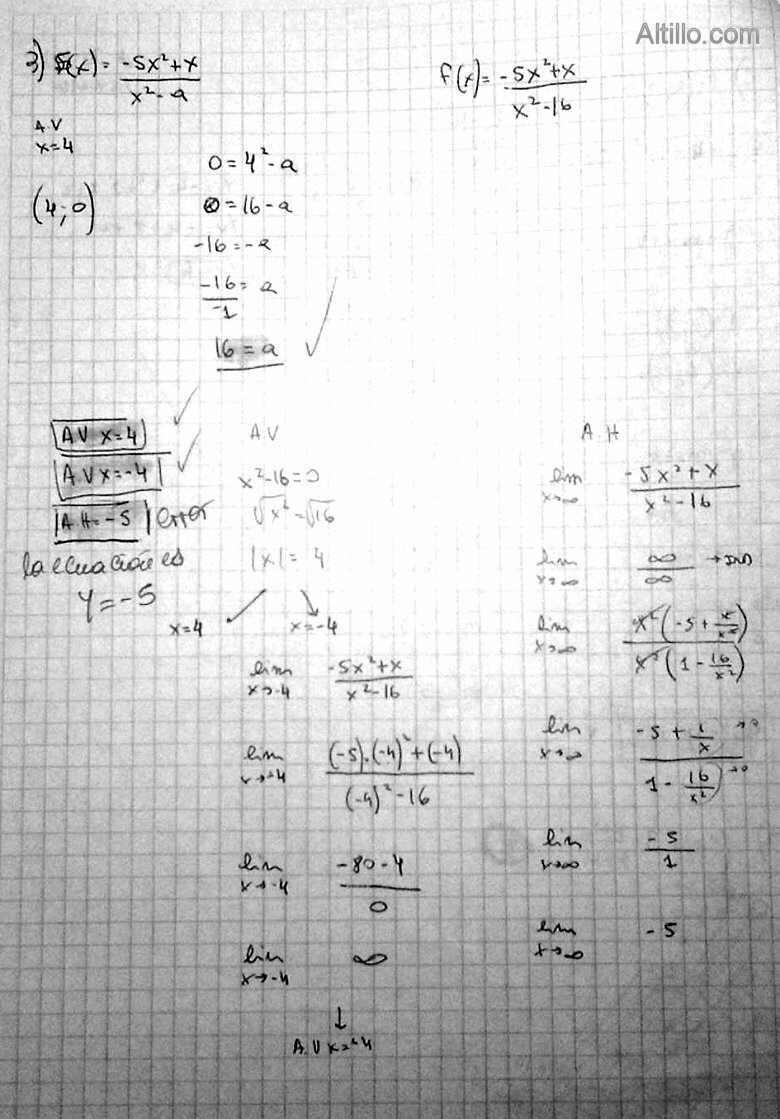 Altillo.com
3) f(x) = (-5x²+x)/(x²-a)
f(x) = (-5x²+x)/(x²-16)
A.V
x=4
(4;0)
0 = 4²-a
0 = 16-a
-16 = -a
-16/-1 = a
16 = a
A V x=4
A.V x=-4
A H=-5 error
la ecuación es
y=-5
A V
x²-16=0
√x² = √16
|x| = 4
x=4
x=-4
lim x→-4 (-5x²+x)/(x²-16)
lim x→-4 ((-5).(-4)²+(-4))/((-4)²-16)
lim x→-4 (-80-4)/0
lim x→-4 ∞
↓
A.V x=-4
A H
lim x→∞ (-5x²+x)/(x²-16)
lim x→∞ ∞/∞ → IND
lim x→∞ x²(-5+x/x²)/x²(1-16/x²)
lim x→∞ (-5+1/x →0)/(1-16/x² →0)
lim x→∞ -5/1
lim x→∞ -5